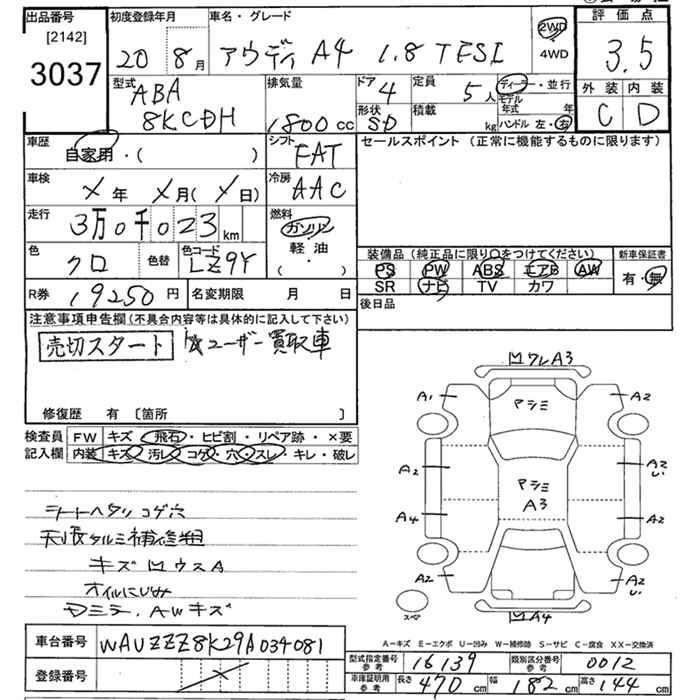 出品番号 [2142] 3037
初度登録年月 20 8月
車名・グレード アウディ A4 1.8 TFSI
2WD ・ 4WD
評価点 3.5
外装 C 内装 D
型式 ABA 8KCDH
排気量 1800 cc
ドア 4 形状 SD
定員 5人 積載 kg
ディーラー・並行
モデル年式 年
ハンドル 左・右
車歴 自家用・( )
シフト FAT
セールスポイント (正常に機能するものに限ります)
車検 X年 X月(X日)
冷房 AAC
走行 3万0千023 km
燃料 ガソリン 軽・油 ( ・ )
色 クロ 色替 色コード LZ9Y
装備品 (純正品に限り○をつけてください)
PS PW ABS エアB AW
SR ナビ TV カワ
新車保証書 有・無
R券 19250円 名変期限 月 日
後日品
注意事項申告欄(不具合内容等は具体的に記入して下さい)
売切スタート ☆ユーザー買取車
修復歴 有 〔箇所 〕
検査員記入欄
FW キズ・飛石・ヒビ割・リペア跡・×要
内装 キズ・汚レ・コゲ・穴・スレ・キレ・破レ
シートヘタリ コゲ穴
天張タルミ補修粗
キズ ウスA
オイルにじみ
AWキズ
ワレA3
A1 マシミ A2
A2 マシミ A3 A2 U1
A4 A2
A2 A2 U1
スペア
A4
A-キズ E-エクボ U-凹み W-補修跡 S-サビ C-腐食 XX-交換済
車台番号 WAUZZZ8K29A034081
登録番号
型式指定番号 参考 16139 類別区分番号 参考 0012
車庫証明用 参考 長さ 470cm 幅 182cm 高さ 144cm